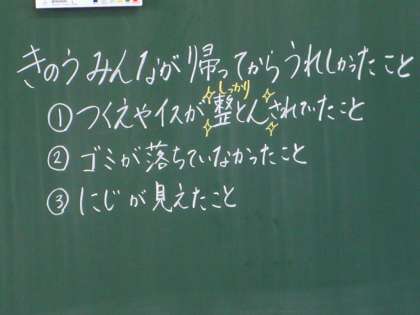 きのうみんなが帰ってからうれしかったこと
しっかり
①つくえやイスが整とんされていたこと
②ゴミが落ちていなかったこと
③にじが見えたこと